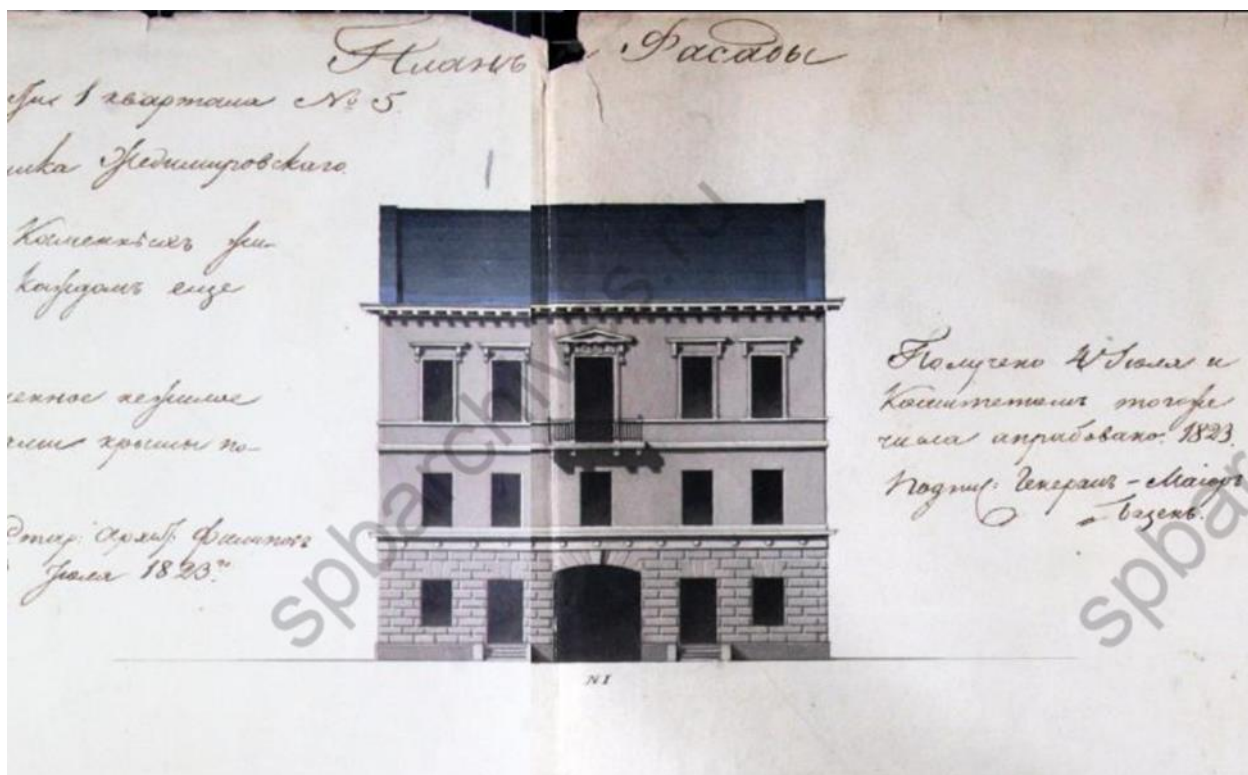 Планъ Фасады
1 квартала № 5.
Жедимировскаго
Каменныхъ жи-
каждомъ еще
нежилое
крыши по-
Архит: Филиповъ
Июля 1823.
Получено 4 Июля и
Комитетомъ тогоже
числа апрабовано. 1823.
Подпис: Генералъ-Маіоръ
Базенъ.
N I
spbarchives.ru
spbar